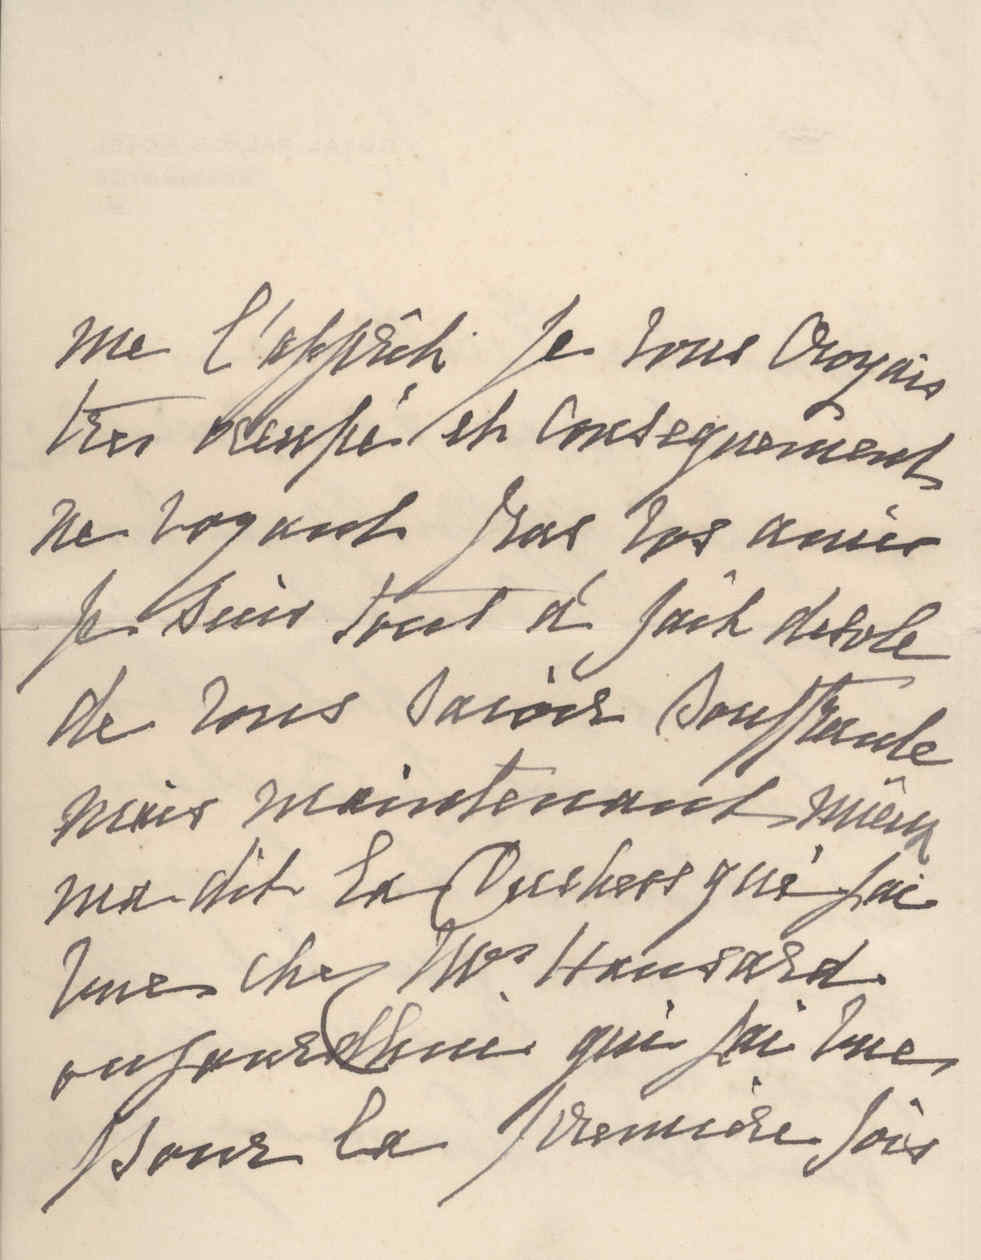 me l'apprit je vous croyais
tres occupé et consequement
ne voyant pas vos amis
je suis tout à fait desole
de vous savoir souffrante
mais maintenant mieux
ma dit la Duchess que j'ai
vue chez Mrs Hansard
aujourdhui que j'ai vue
pour la première fois